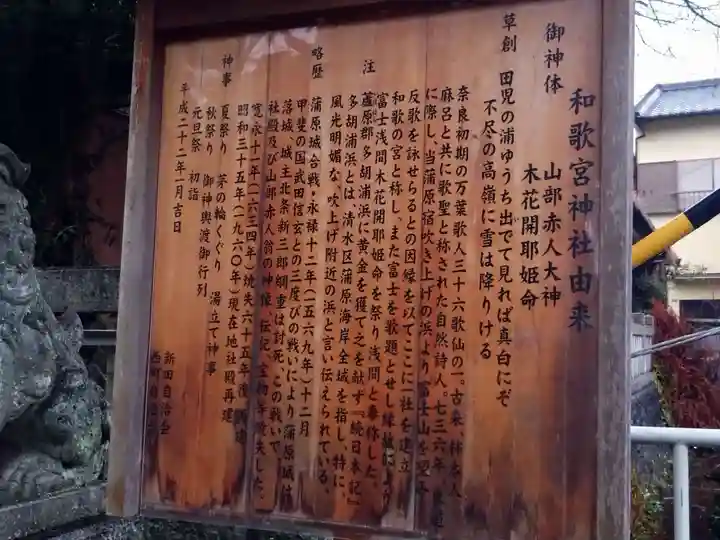 和歌宮神社由来
御神体 山部赤人大神
木花開耶姫命
草創 田児の浦ゆうち出でて見れば真白にぞ
不尽の高嶺に雪は降りける
奈良初期の万葉歌人三十六歌仙の一。古来、柿本人
麻呂と共に歌聖と称された自然詩人。七三六年、
に際し、当蒲原宿吹き上げの浜より富士山を望み
反歌を詠せらるとの因縁を以てここに一社を建立
和歌の宮と称し、また富士を歌題とせし縁故により
富士浅間木花開耶姫命を祭り浅間と奉称した。
注 蘆原郡多胡浦浜に黄金を獲て之を献ず『続日本記』
多胡浦浜とは、清水区蒲原海岸全域を指し、特に、
風光明媚な、吹上げ附近の浜と言い伝えられている。
略歴 蒲原城合戦・永禄十二年(一五六九年)十二月
甲斐の国武田信玄との三度びの戦いにより蒲原城は
落城、城主北条新三郎綱重は討死、この戦いで、
社殿及び山部赤人翁の神像、伝記、宝物等焼失した。
寛永十一年(一六三四年)焼失六十五年後再建
昭和三十五年(一九六〇年)現在地社殿再建
神事 夏祭り 茅の輪くぐり 湯立て神事
秋祭り 御神輿渡御行列
元旦祭 初詣
平成二十二年一月吉日
新田自治会
西町自治会